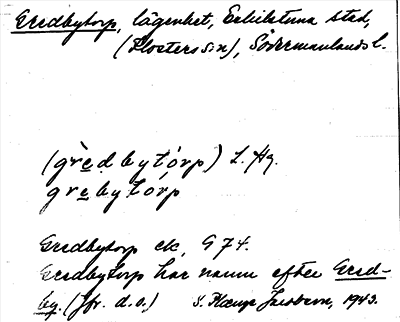 Gredbytorp, lägenhet, Eskilstuna stad,
(Klosters sn), Södermanlands l.
(grèdbytórp) L. Hg.
grebytórp
Gredbytorp ek, G 74.
Gredbytorp har namn efter Gred-
by. (Jfr. d.o.) S. Kampe Jacobson, 1943.